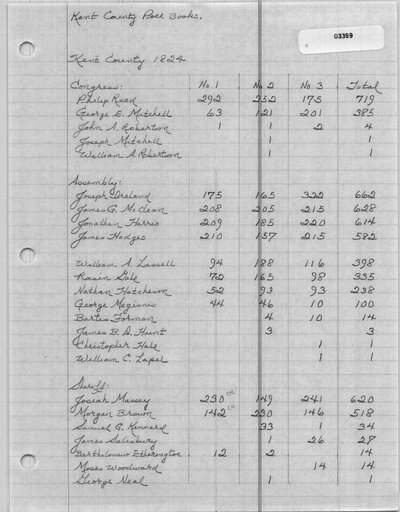 Kent County Poll Books.
03399
Kent County 1824
Congress: No. 1 No. 2 No. 3 Total
Philip Reed 292 252 175 719
George E. Mitchell 63 121 201 385
John A. Robertson 1 1 2 4
Joseph Mitchell 1 1
William A. Robertson 1 1
Assembly:
Joseph Ireland 175 165 322 662
James G. McClean 208 205 215 628
Jonathan Harris 209 185 220 614
James Hodges 210 157 215 582
William A. Lassell 94 188 116 398
Rasin Gale 72 165 98 335
Nathan Hatcheson 52 93 93 238
George Meginnis 44 46 10 100
Bartis Forman 4 10 14
James B. D. Hunt 3 3
Christopher Hale 1 1
William C. Lapel 1 1
Sheriff:
Josiah Massey 230 149 241 620
Morgan Brown 142 230 146 518
Samuel G. Kennard 33 1 34
James Salesbury 1 26 27
Bartholomew Etherington 12 2 14
Moses Woodward 14 14
George Neal 1 1